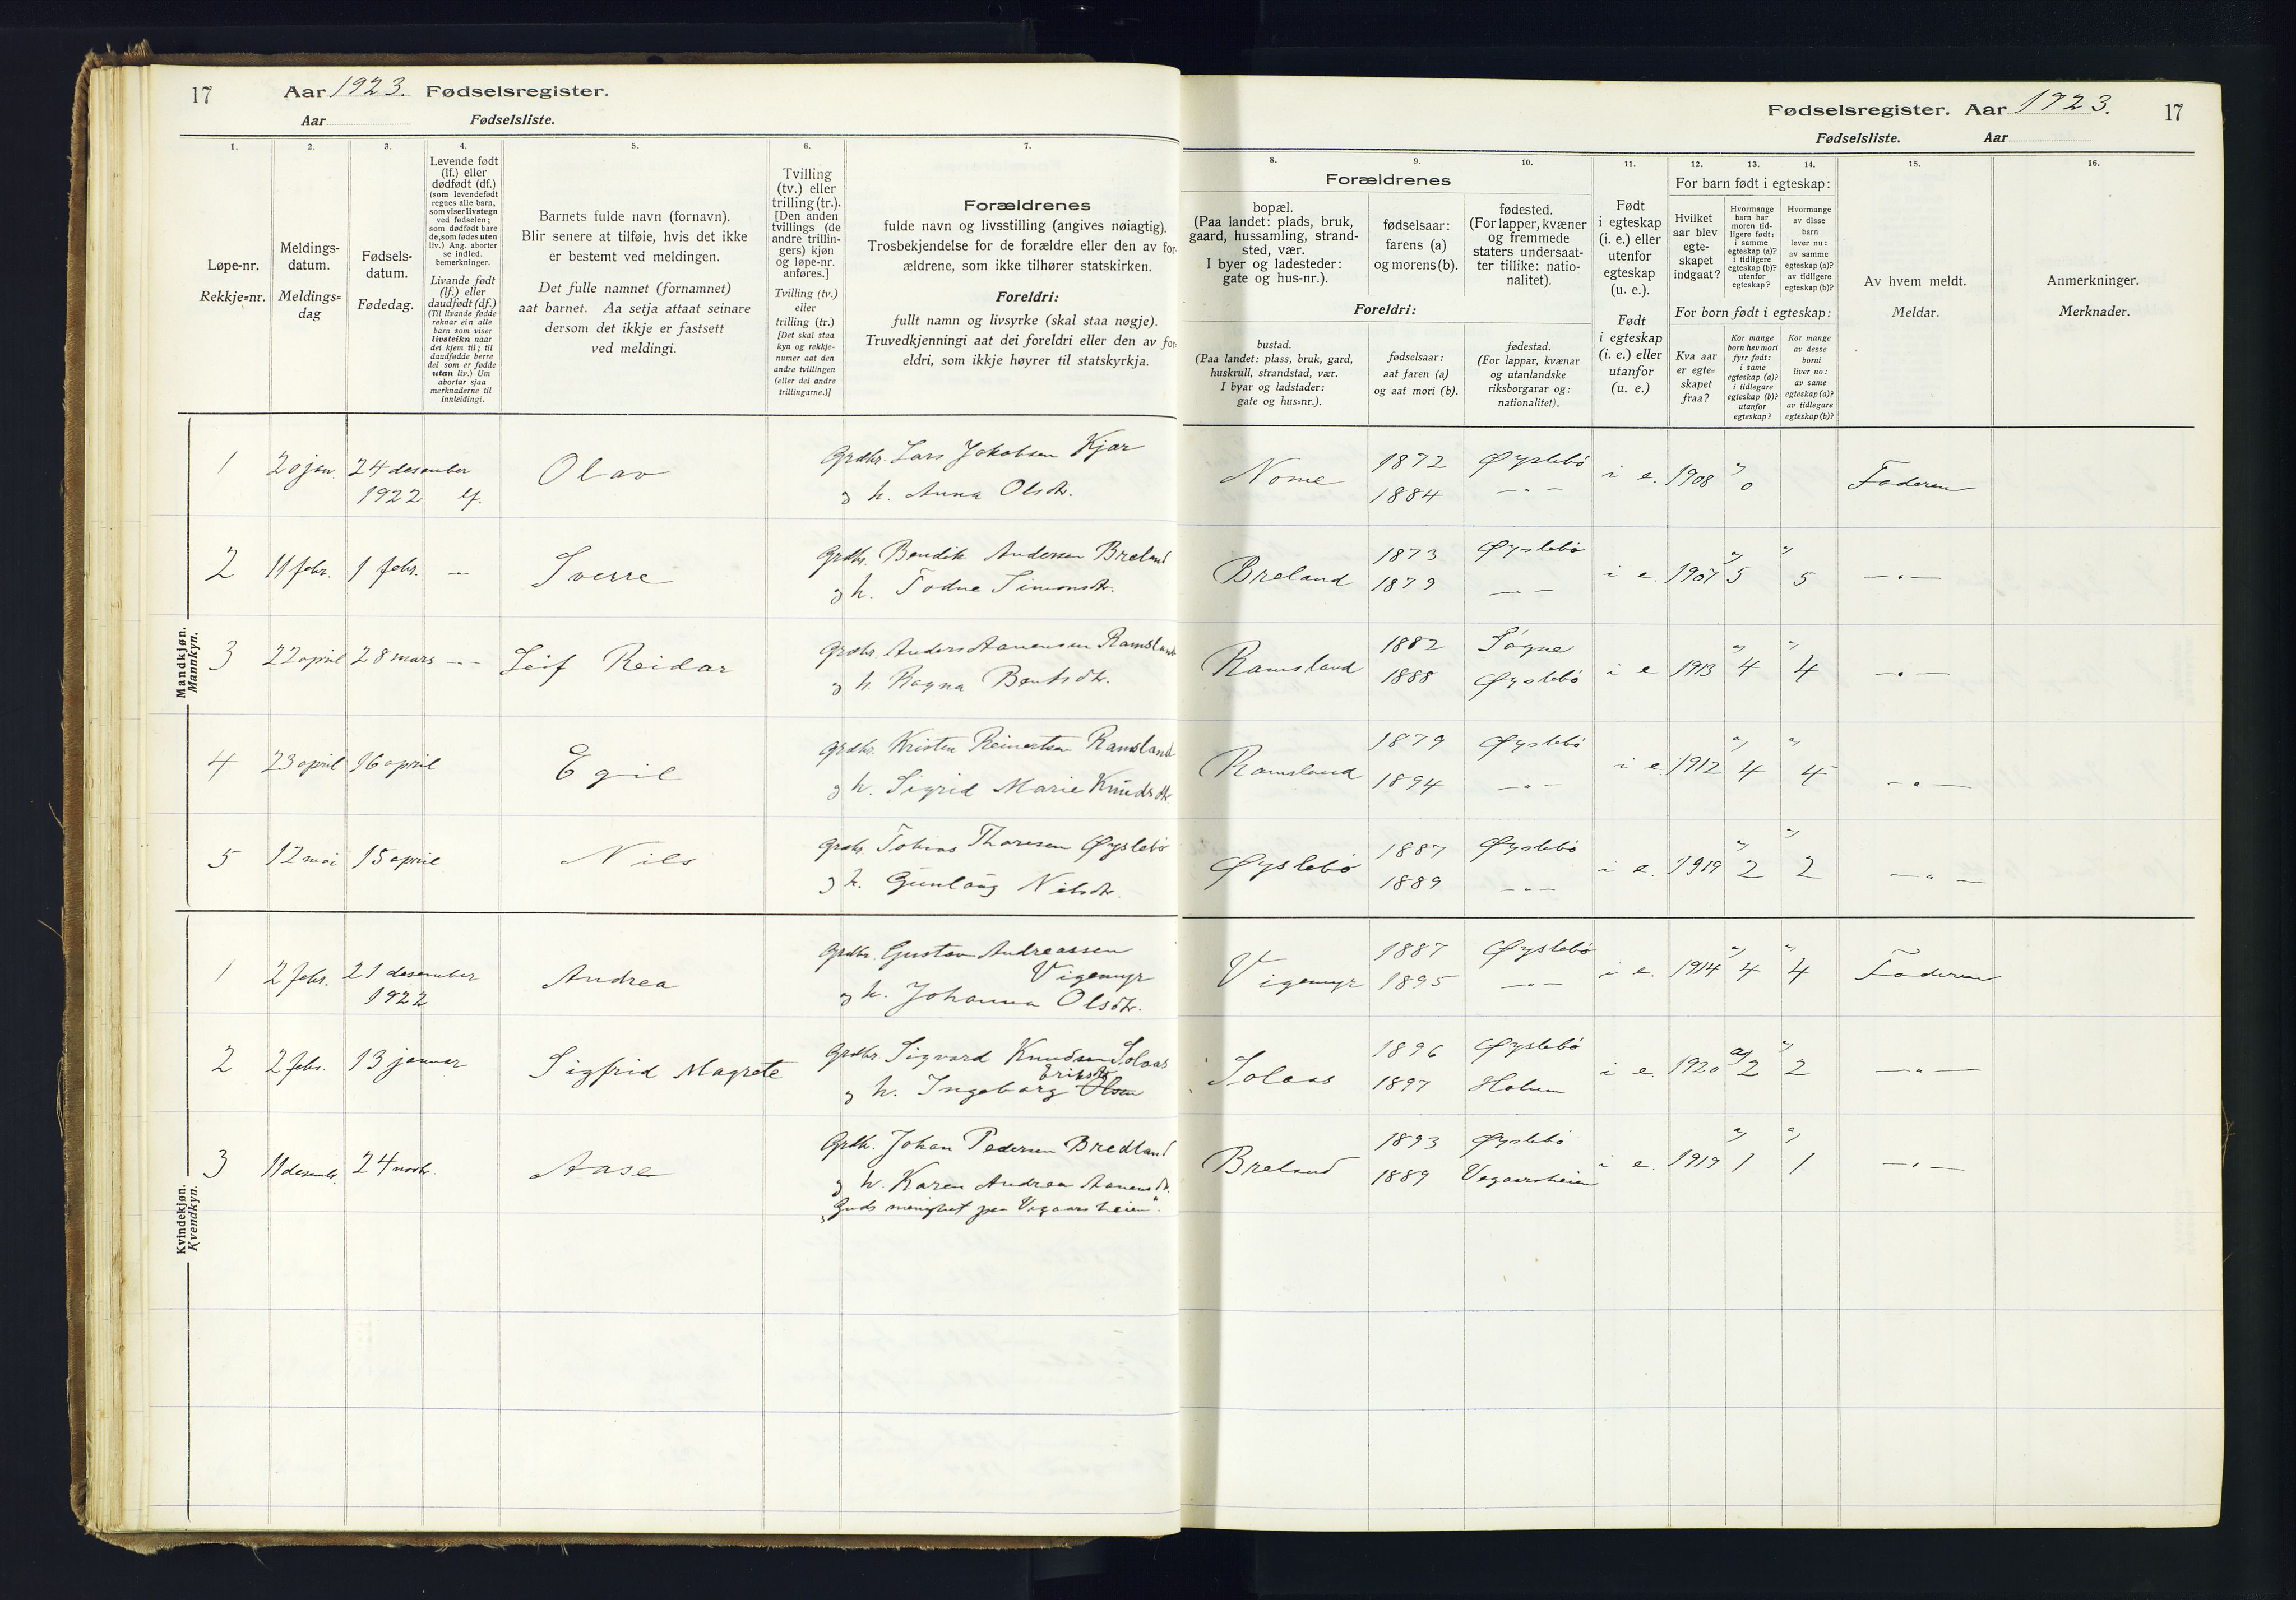 17 Aar 1923. Fødselsregister.
Aar Fødselsliste.
1. 2. 3. 4. 5. 6. 7.
Løpe-nr.
Rekkje=nr.
Meldings-
datum.
Meldings=
dag
Fødsels-
datum.
Fødedag.
Levende født
(lf.) eller
dødfødt (df.)
(som levendefødt
regnes alle barn,
som viser livstegn
ved fødselen;
som dødfødt bare
de, som fødes uten
liv.) Ang. aborter
se indled.
bemerkninger.
Livande født
(lf.) eller
daudfødt (df.)
(Til livande fødde
reknar ein alle
barn som viser
livsteikn naar
dei kjem til; til
daudfødde berre
dei som er fødde
utan liv.) Um
abortar sjaa
merknaderne til
innleidingi.
Barnets fulde navn (fornavn).
Blir senere at tilføie, hvis det ikke
er bestemt ved meldingen.
Det fulle namnet (fornamnet)
aat barnet. Aa setja attaat seinare
dersom det ikkje er fastsett
ved meldingi.
Tvilling
(tv.) eller
trilling (tr.).
[Den anden
tvillings (de
andre trillin-
gers) kjøn
og løpe-nr.
anføres.]
Tvilling (tv.)
eller
trilling (tr.)
[Det skal staa
kyn og rekkje-
numer aat den
andre tvillingen
(eller dei andre
trillingarne.)]
Forældrenes
fulde navn og livsstilling (angives nøiagtig).
Trosbekjendelse for de forældre eller den av for-
ældrene, som ikke tilhører statskirken.
Foreldri:
fullt namn og livsyrke (skal staa nøgje).
Truvedkjenningi aat dei foreldri eller den av for-
eldri, som ikkje høyrer til statskyrkja.
Mandkjøn.
Mannkyn.
1 20 jan. 24 desember Olav Grdbr. Lars Jakobsen Kjær
1922 lf. og h. Anna Olsdtr.
2 11 febr. 1 febr. -"- Sverre Grdbr. Bendik Andersen Breland
og h. Todne Simonsdtr.
3 22 april 28 mars -"- Leif Reidar Grdbr. Anders Aanensen Ramsland
og h. Ragna Bentsdtr.
4 23 april 16 april Egil Grdbr. Kristen Reinertsen Ramsland
og h. Sigrid Marie Knudsdtr.
5 12 mai 15 april Nils Grdbr. Tobias Thoresen Øyslebø
og h. Gunlaug Nilsdtr.
Kvindekjøn.
Kvendkyn.
1 2 febr. 21 desember Andrea Grdbr. Gustav Andreassen
1922 Vigemyr
og h. Johanna Olsdtr.
2 2 febr. 13 januar Sigfrid Magrete Grdbr. Sigvard Knudsen Solaas
Eriksdtr.
og h. Ingeborg Olsen
3 11 desembr. 24 novbr. Aase Grdbr. Johan Pedersen Bredland
og h. Karen Andrea Aanensdtr.
"Guds menighet paa Vegaarsheien".
Fødselsregister. Aar 1923. 17
Fødselsliste. Aar
8. 9. 10. 11. 12. 13. 14. 15. 16.
Forældrenes
bopæl.
(Paa landet: plads, bruk,
gaard, hussamling, strand-
sted, vær.
I byer og ladesteder:
gate og hus-nr.).
fødselsaar:
farens (a)
og morens (b).
fødested.
(For lapper, kvæner
og fremmede
staters undersaat-
ter tillike: natio-
nalitet).
Foreldri:
bustad.
(Paa landet: plass, bruk, gard,
huskrull, strandstad, vær.
I byar og ladstader:
gate og hus=nr.).
fødselsaar:
aat faren (a)
og aat mori (b).
fødestad.
(For lappar, kvænar
og utanlandske
riksborgarar og:
nationalitet).
Født
i egteskap
(i. e.) eller
utenfor
egteskap
(u. e.).
Født
i egteskap
(i. e.) eller
utanfor
(u. e.)
For barn født i egteskap:
Hvilket
aar blev
egte-
skapet
indgaat?
Hvormange
barn har
moren tid-
ligere født:
i samme
egteskap (a)?
i tidligere
egteskap (b)?
utenfor
egteskap?
Hvormange
av disse
barn
lever nu:
av samme
egteskap (a)?
av tidligere
egteskap (b)?
For born født i egteskap:
Kva aar
er egte=
skapet
fraa?
Kor mange
born hev mori
fyrr født:
i same
egteskap (a)?
i tidlegare
egteskap (b)?
utanfor
egteskap?
Kor mange
av desse
borni
liver no:
av same
egteskap (a)?
av tidlegare
egteskap (b)?
Av hvem meldt.
Meldar.
Anmerkninger.
Merknader.
Nome 1872 Øyslebø i e. 1908 a) 0 Faderen
1884 -"-
Breland 1873 Øyslebø i e. 1907 a) 5 a) 5 -"-
1879 -"-
Ramsland 1882 Søgne i e 1913 a) 4 a) 4 -"-
1888 Øyslebø
Ramsland 1879 Øyslebø i e. 1912 a) 4 a) 4 -"-
1894 -"-
Øyslebø 1887 Øyslebø i e. 1919 a) 2 a) 2 -"-
1889 -"-
Vigemyr 1887 Øyslebø i e. 1914 a) 4 a) 4 Faderen
1895 -"-
Solaas 1896 Øyslebø i e. 1920 a) 2 a) 2 -"-
1897 Holum
Breland 1893 Øyslebø i e. 1919 a) 1 a) 1 -"-
1889 Vegaarsheien